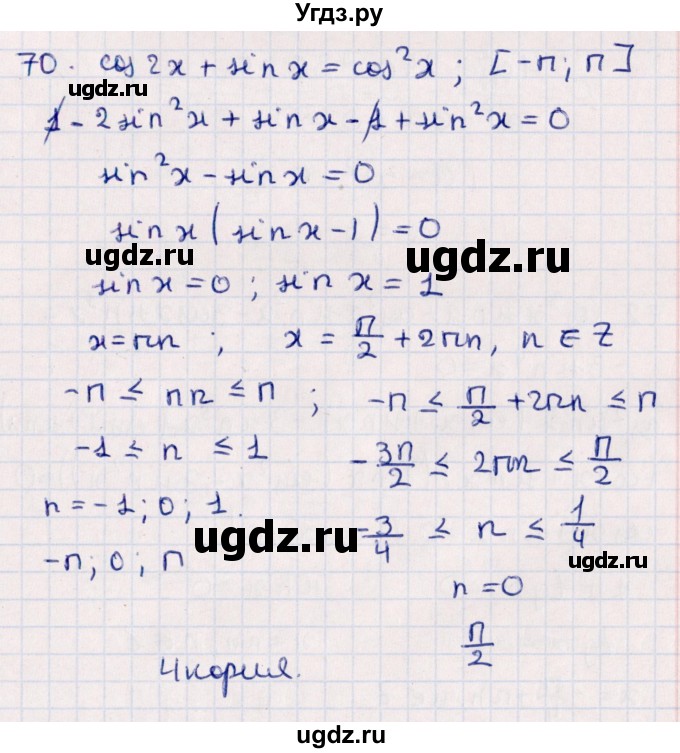 Угдз.ру
70. cos 2x + sin x = cos²x ; [-π; π]
ugdz.ru
1 - 2 sin²x + sin x - 1 + sin²x = 0
sin²x - sin x = 0
sin x ( sin x - 1 ) = 0
ugdz.ru ugdz.ru
sin x = 0 ; sin x = 1
x = πn ; x = π/2 + 2πn, n ∈ Z
-π ≤ πn ≤ π ; -π ≤ π/2 + 2πn ≤ π
-1 ≤ n ≤ 1 -3π/2 ≤ 2πn ≤ π/2
n = -1; 0; 1. -3/4 ≤ n ≤ 1/4
ugdz.ru ugdz.ru
-π; 0; π n = 0
π/2
4 корня.
ugdz.ru